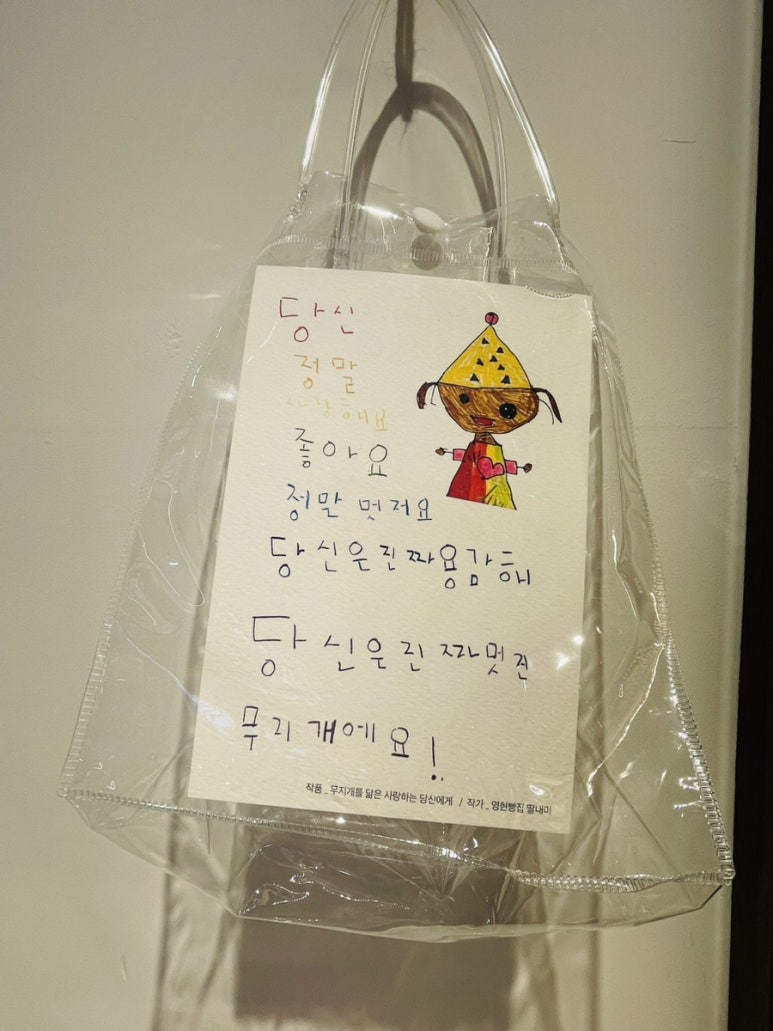 당신
정말
사랑해요
좋아요
정말 멋져요
당신은진짜용감해
당신은진짜멋진
무리개에요!
작품_ 무지개를 닮은 사랑하는 당신에게 / 작가_ 염현빵집 딸내미